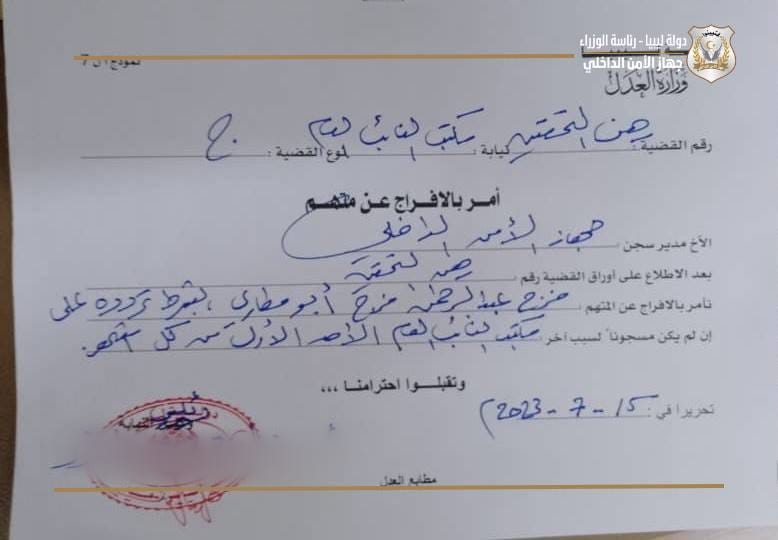 دولة ليبيا - رئاسة الوزراء
جهاز الأمن الداخلي
وزارة العدل
نموذج أ ل 7
رقم القضية : رهن التحقيق نيابة : مكتب النائب العام نوع القضية : ج
أمر بالافراج عن متهم
الأخ مدير سجن : جهاز الأمن الداخلي
بعد الاطلاع على أوراق القضية رقم رهن التحقيق
نأمر بالافراج عن المتهم : فرج عبدالرحمن فرج أبو مطاري ، بشرط تردده على
إن لم يكن مسجوناً لسبب آخر مكتب النائب العام الأحد الأول من كل شهر .
وتقبلــوا احترامنــا ،،،
تحريرا في : 15 - 7 - 2023 م
رئيس
النيابة
مطابع العدل